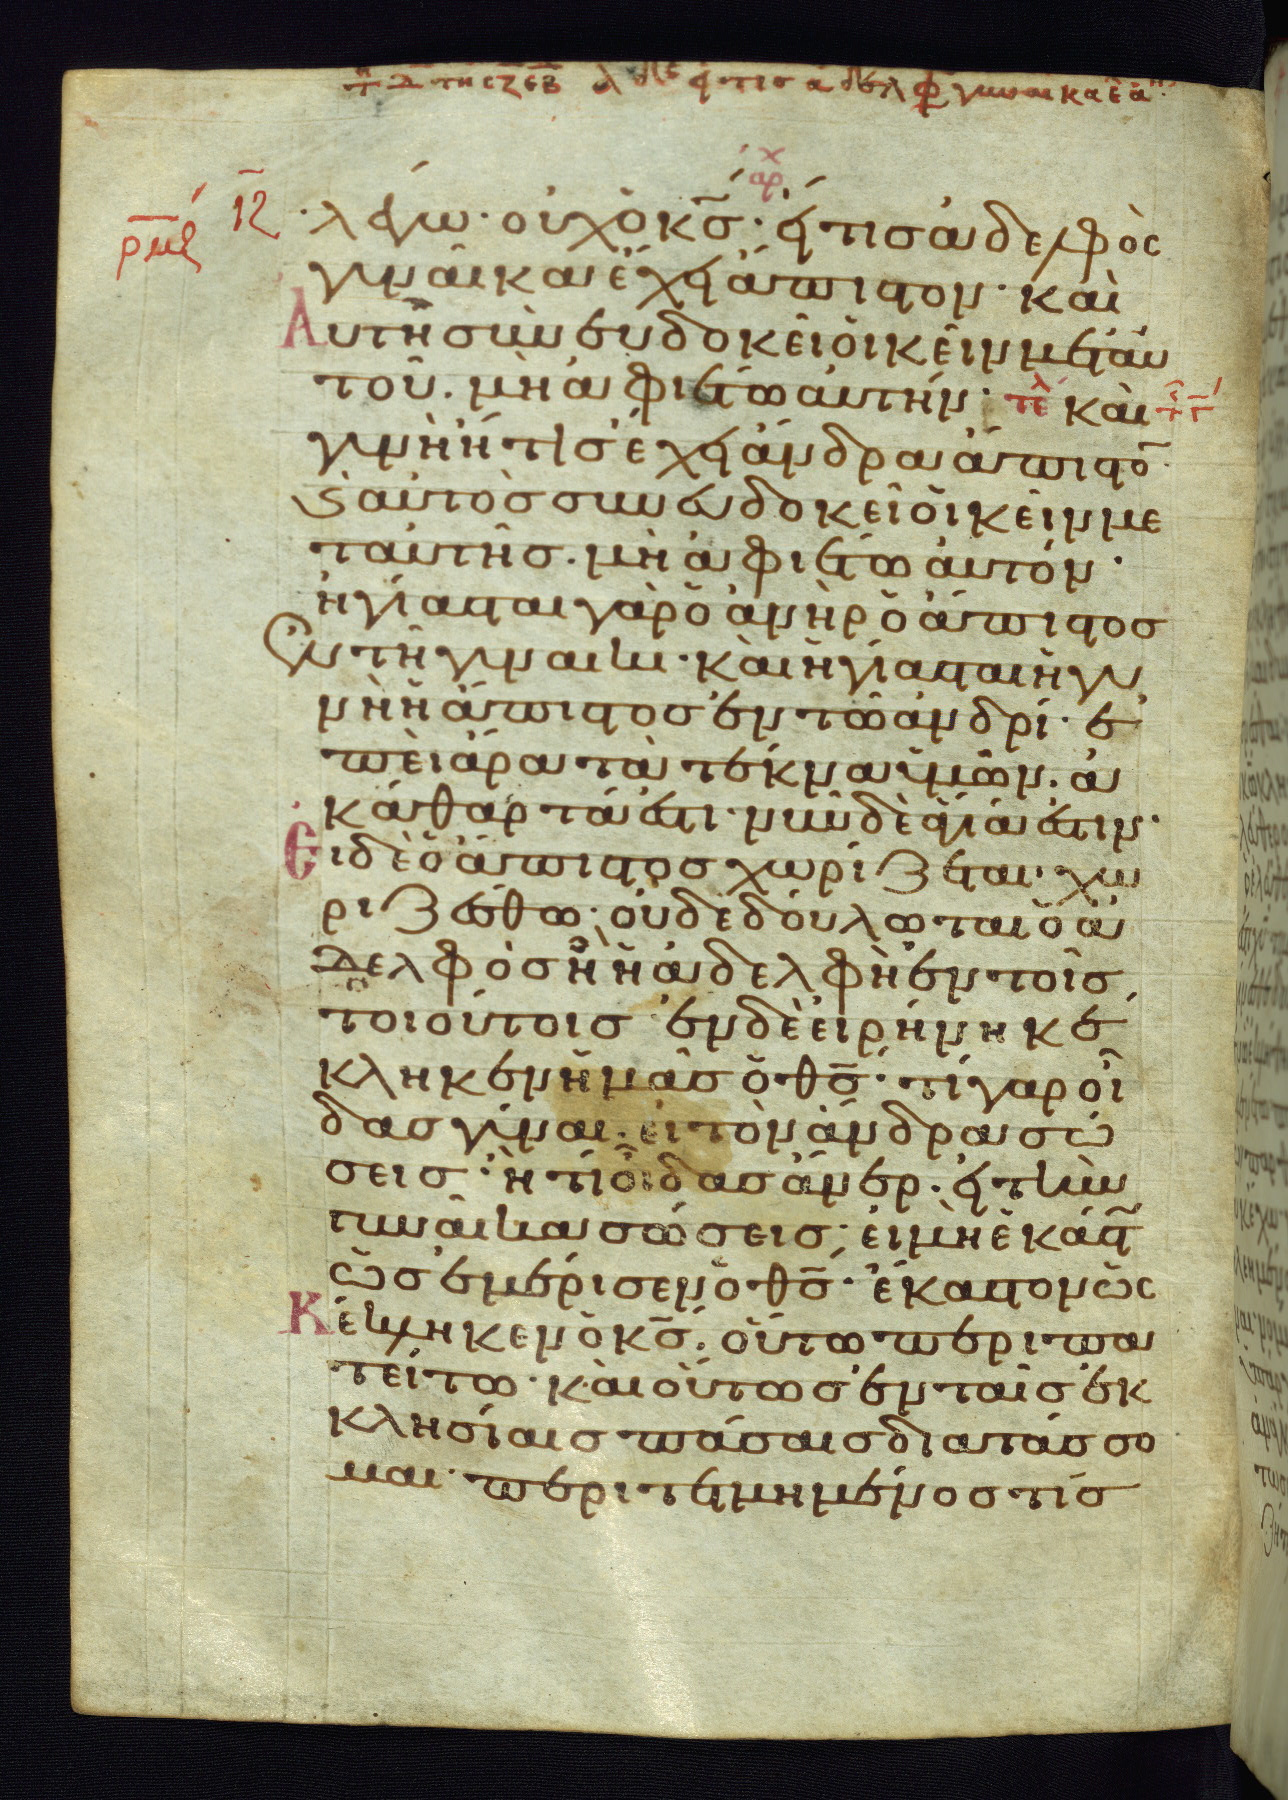 λέγω· οὐχ ὁ κ̅ς̅· εἴ τις ἀδελφὸς
γυναῖκα ἔχει ἄπιστον· καὶ
Αὐτὴ συνευδοκεῖ οἰκεῖν μετ' αὐ
τοῦ. μὴ ἀφιέτω αὐτήν· καὶ
γυνὴ ἥτις ἔχει ἄνδρα ἄπιστο̅·
ϗ αὐτὸς συνευδοκεῖ οἰκεῖν με
τ' αὐτῆς. μὴ ἀφιέτω αὐτόν·
ἡγίασται γὰρ ὁ ἀνὴρ ὁ ἄπιστος
ἐν τῇ γυναικί· καὶ ἡγίασται ἡ γυ
νὴ ἡ ἄπιστος ἐν τῷ ἀνδρί· ἐ
πεὶ ἄρα τὰ τέκνα ὑμῶν. ἀ
κάθαρτά ἐστι· νῦν δὲ ἅγιά ἐστιν·
Εἰ δὲ ὁ ἄπιστος χωρίζεται· χω
ριζέσθω· οὐ δεδούλωται ὁ ἀ
δελφὸς ἢ ἡ ἀδελφὴ ἐν τοῖς
τοιούτοις ἐν δὲ εἰρήνη κέ
κληκεν ἡμᾶς ὁ θ̅ς̅· τί γαρ οἶ
δας γύναι. εἰ τὸν ἄνδρα σώ
σεις· ἢ τί οἶδας ἄνερ. εἰ τὴν
γυναῖκα σώσεις· εἰ μὴ ἑκάστ
ὡς ἐμέρισεν ὁ θ̅ς̅· ἕκαστον ὡς
Κέκληκεν ὁ κ̅ς̅· οὕτω περιπα
τείτω· καὶ οὕτως ἐν ταῖς ἐκ
κλησίαις πάσαις διατάσσο
μαι· περιτετμημένος τίς